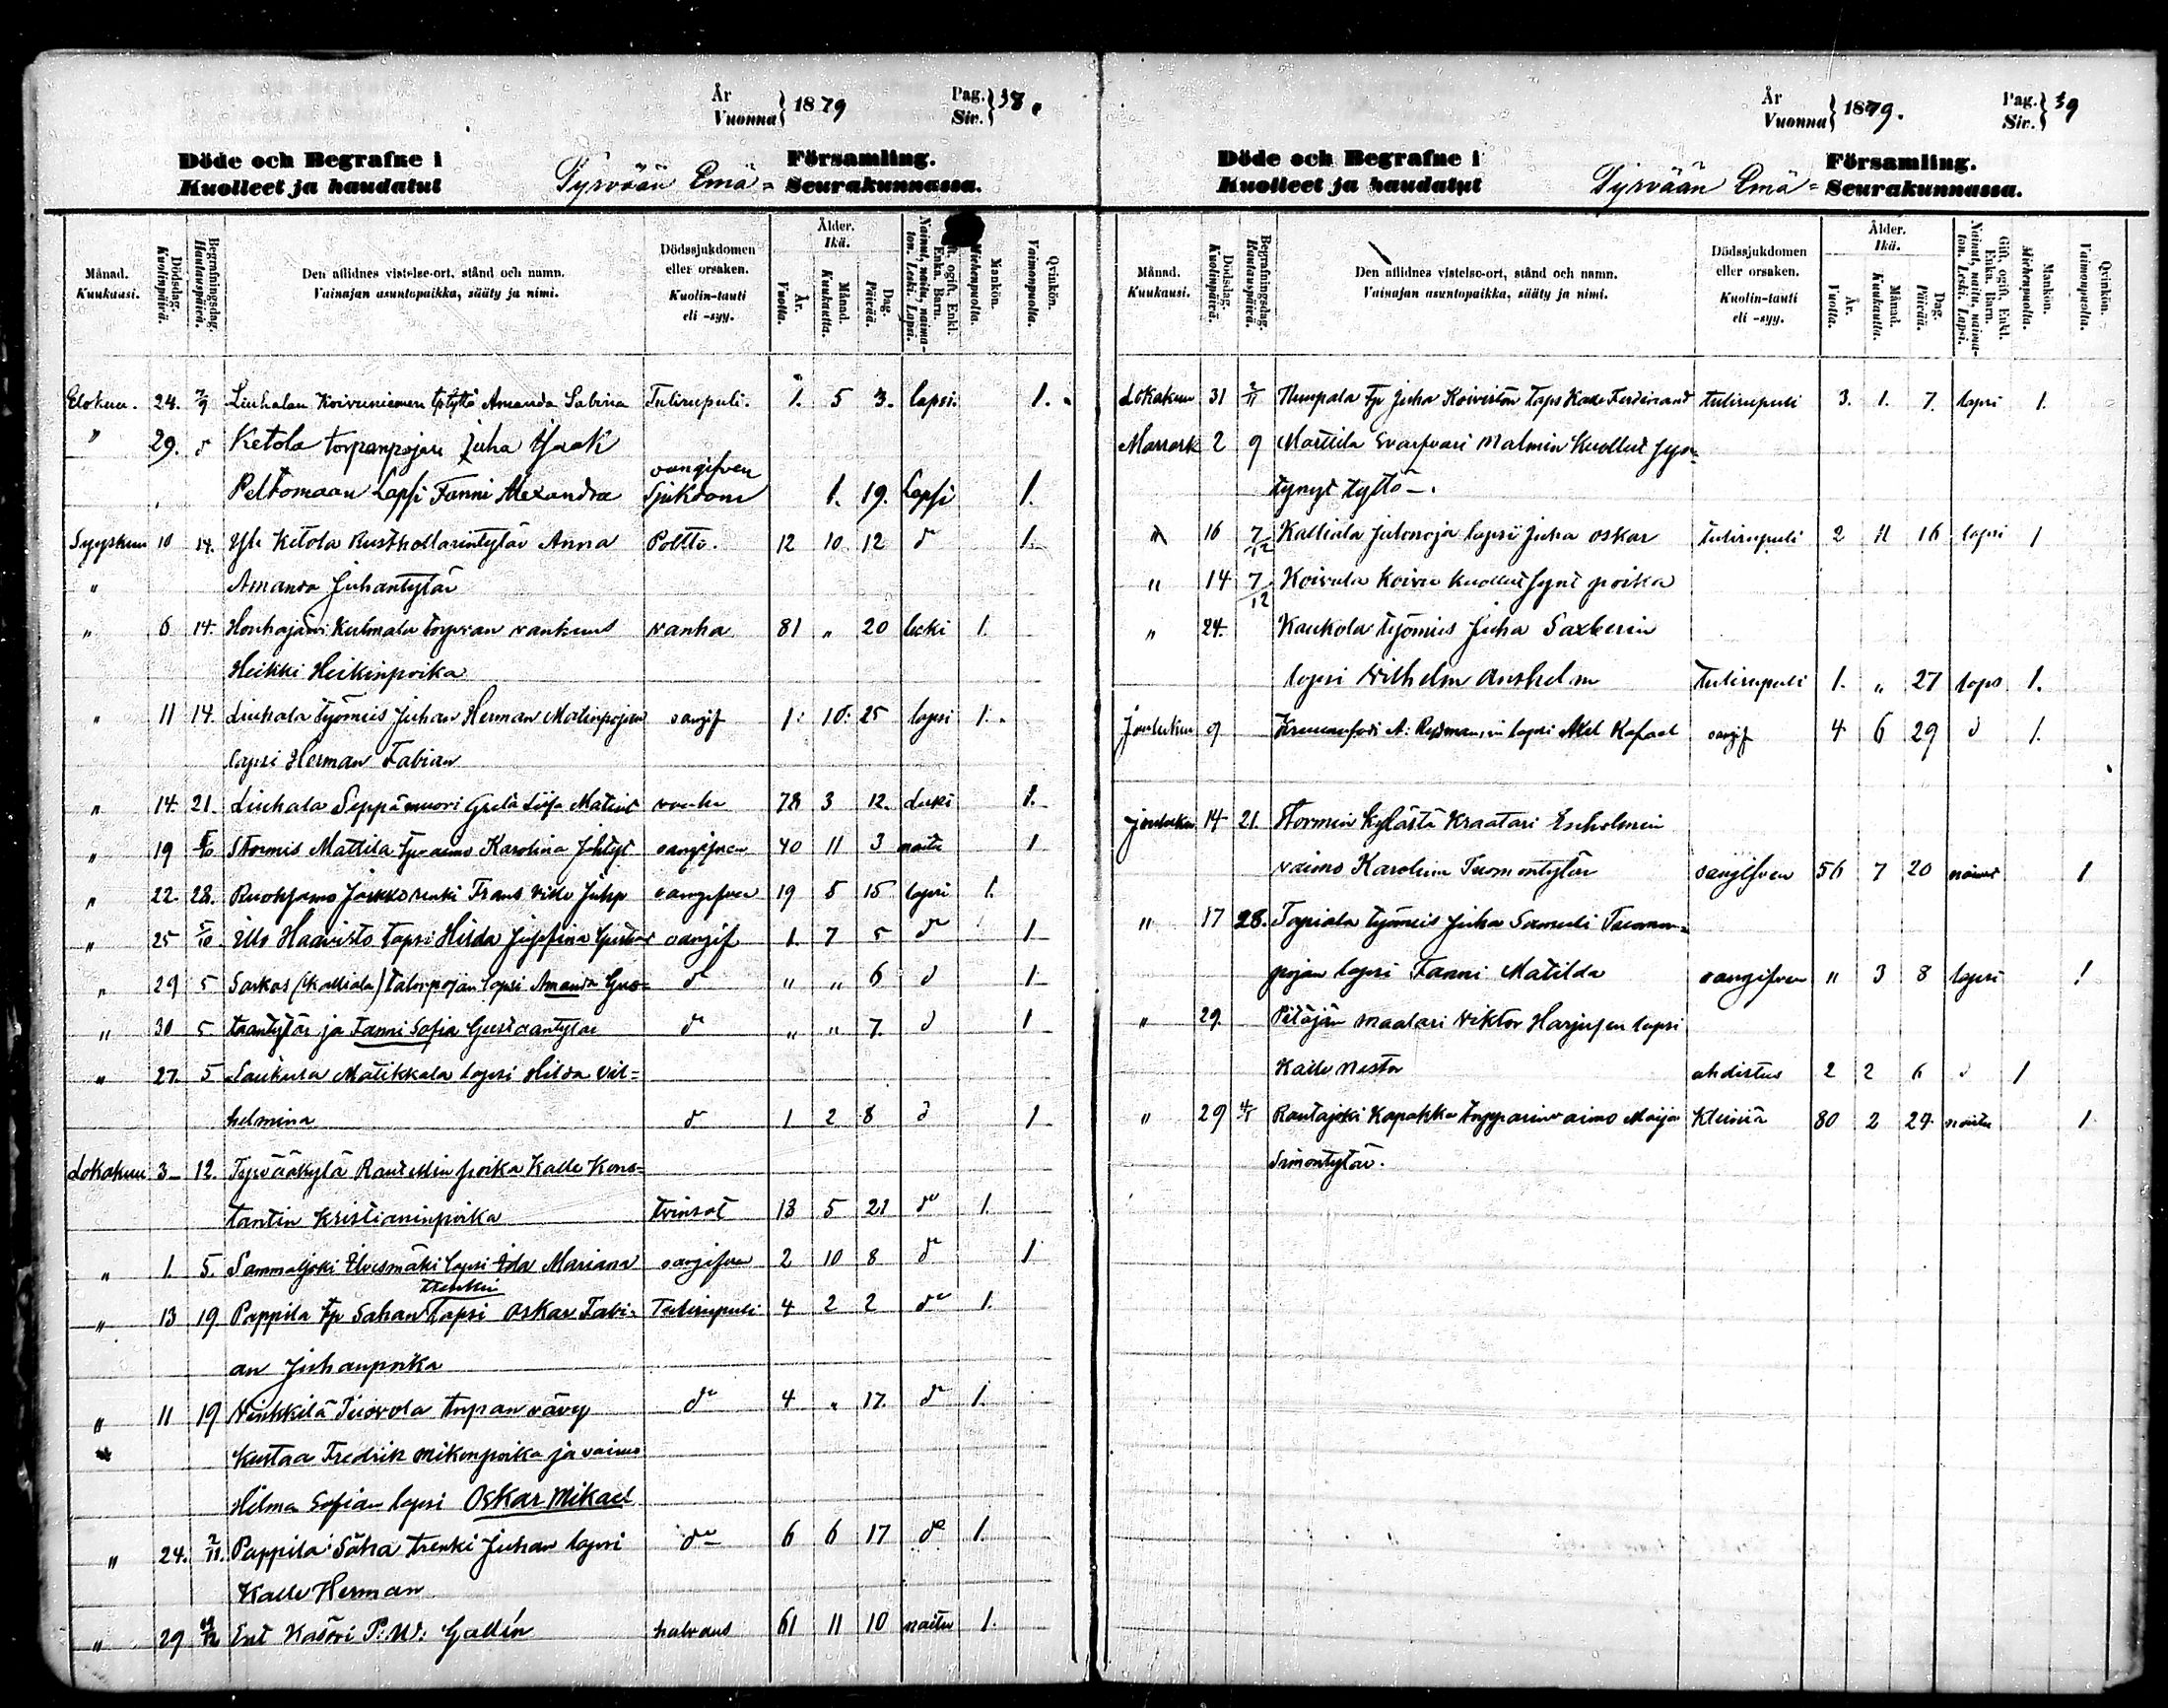 År Vuonna } 1879 Pag. Siv. } 38.
Döde och Begrafne i Församling.
Kuolleet ja haudatut Tyrvään Emä= Seurakunnassa.
Månad. Kuukausi.
Dödsdag. Kuolinpäivä.
Begrafningsdag. Hautauspäivä.
Den aflidnes vistelse-ort, stånd och namn.
Vainajan asuntopaikka, sääty ja nimi.
Dödssjukdomen eller orsaken.
Kuolin-tauti eli -syy.
Ålder. Ikä.
År. Vuotta.
Månad. Kuukautta.
Dag. Päivää.
Gift, ogift, Enkl. Enka. Barn.
Nainut, naitu, naimaton. Leski. Lapsi.
Mankön. Miehenpuolta.
Qvinkön. Vaimonpuolta.
Elokuu. 24. 7/9 Liuhalan Koivuniemen tytyttö Amanda Sabina Tulirupuli. 1. 5 3. lapsi. 1.
" 29. d Ketola torpanpojan Juha Isaak
Peltomaan Lapsi Fanni Alexandra oangifven Sjukdom 1. 19. Lapsi 1.
Syyskuu 10 14. Yli Ketola Rusthollarintytär Anna Poltto. 12 10 12 d 1.
" Amanda Juhantytär
" 6 14. Honhajärvi Kulmala torpan vanhus vanha 81 " 20 lecki 1.
Heikki Heikinpoika
" 11 14. Liuhala työmies Juhan Herman Matinpojan oangif 1. 10. 25 lapsi 1.
lapsi Herman Fabian
" 14. 21. Liuhala Seppämuori Greta Liisa Matint vanha 78 3 12. Leski 1.
" 19 5/10 Stormis Mattila tp vaimo Karolina oangifven 40 11 3 naitu 1
" 22. 28. Ruohjamo Jaakko renki Frans Vikt Juhp oangifven 19 5 15 lapsi 1.
" 25 5/10 Illo Haavisto lapsi Hilda Josefina oangif 1. 7 5 d 1
" 29 5 Sarkas (Kalliala) talonpojan lapsi Amanda Gus= d " " 6 d 1
" 30 5 taantytär ja Fanni Sofia Gustaantytär d " " 7. d 1
" 27. 5 Saukura Matikkala lapsi Hilda Vil=
helmina d 1 2 8 d 1
Lokakuu 3 12. Tyrväänkylä Rautellin poika Kalle Kons=
tantin Kristianinpoika tvinsot 13 5 21 d 1
" 1. 5. Sammaljoki Ilvesmäki lapsi Ida Mariana oangifven 2 10 8 d 1
trenkin
" 13 19 Pappila tp Sahan lapsi Oskar Fabi= Tulirupuli 4 2 2 d 1.
an Juhanpoika
" 11 19 Vinkkilä Tuovola torpan vävy d 4 " 17. d 1.
Kustaa Fredrik Mikonpoika ja vaimo
Hilma Sofian lapsi Oskar Mikael
" 24. 2/11. Pappila Saha trenki Juhan lapsi d 6 6 17 d 1.
Kalle Herman
" 29 Ent Kasöri P. W. Gallén halvaus 61 11 10 naitu 1.
År Vuonna } 1879. Pag. Siv. } 39
Döde och Begrafne i Församling.
Kuolleet ja haudatut Tyrvään Emä= Seurakunnassa.
Månad. Kuukausi.
Dödsdag. Kuolinpäivä.
Begrafningsdag. Hautauspäivä.
Den aflidnes vistelse-ort, stånd och namn.
Vainajan asuntopaikka, sääty ja nimi.
Dödssjukdomen eller orsaken.
Kuolin-tauti eli -syy.
Ålder. Ikä.
År. Vuotta.
Månad. Kuukautta.
Dag. Päivää.
Gift, ogift, Enkl. Enka. Barn.
Nainut, naitu, naimaton. Leski. Lapsi.
Mankön. Miehenpuolta.
Qvinkön. Vaimonpuolta.
Lokakuu 31 2/11 tp Juha Koiviston laps Kalle Ferdinand tulirupuli 3. 1. 7. lapsi 1.
Marrask 2 9 Marttila Malmin Kuollut syn=
tynyt tyttö.
" 16 7/12 Kalliala Julinoja lapsi Juha Oskar tulirupuli 2 11 16 lapsi 1
" 14 7/12 Koivula Koivu kuollut synt poika
" 24. Kaukola työmies Juha Saxberin
lapsi Vilhelm Anshelm tulirupuli 1. " 27 laps 1.
Joulukuu 9 A. lapsi Axel Rafael oangif 4 6 29 d 1.
Joulukuu 14 21. Stormin kylästä Kraatari Enholmin
vaimo Karolina Tuomontytär oangifven 56 7 20 nainut 1
" 17 28. Tapiala työmies Juha Samuli Tuomon=
pojan lapsi Fanni Matilda oangifven " 3 8 lapsi 1
" 29. Pitäjän maalari Viktor Harjusen lapsi
Kalle Nestor ahdistus 2 2 6 d 1
" 29 4/1 Rautajoki Kapakka torpparin vaimo Maija 80 2 29 naitu 1
Simontytär.